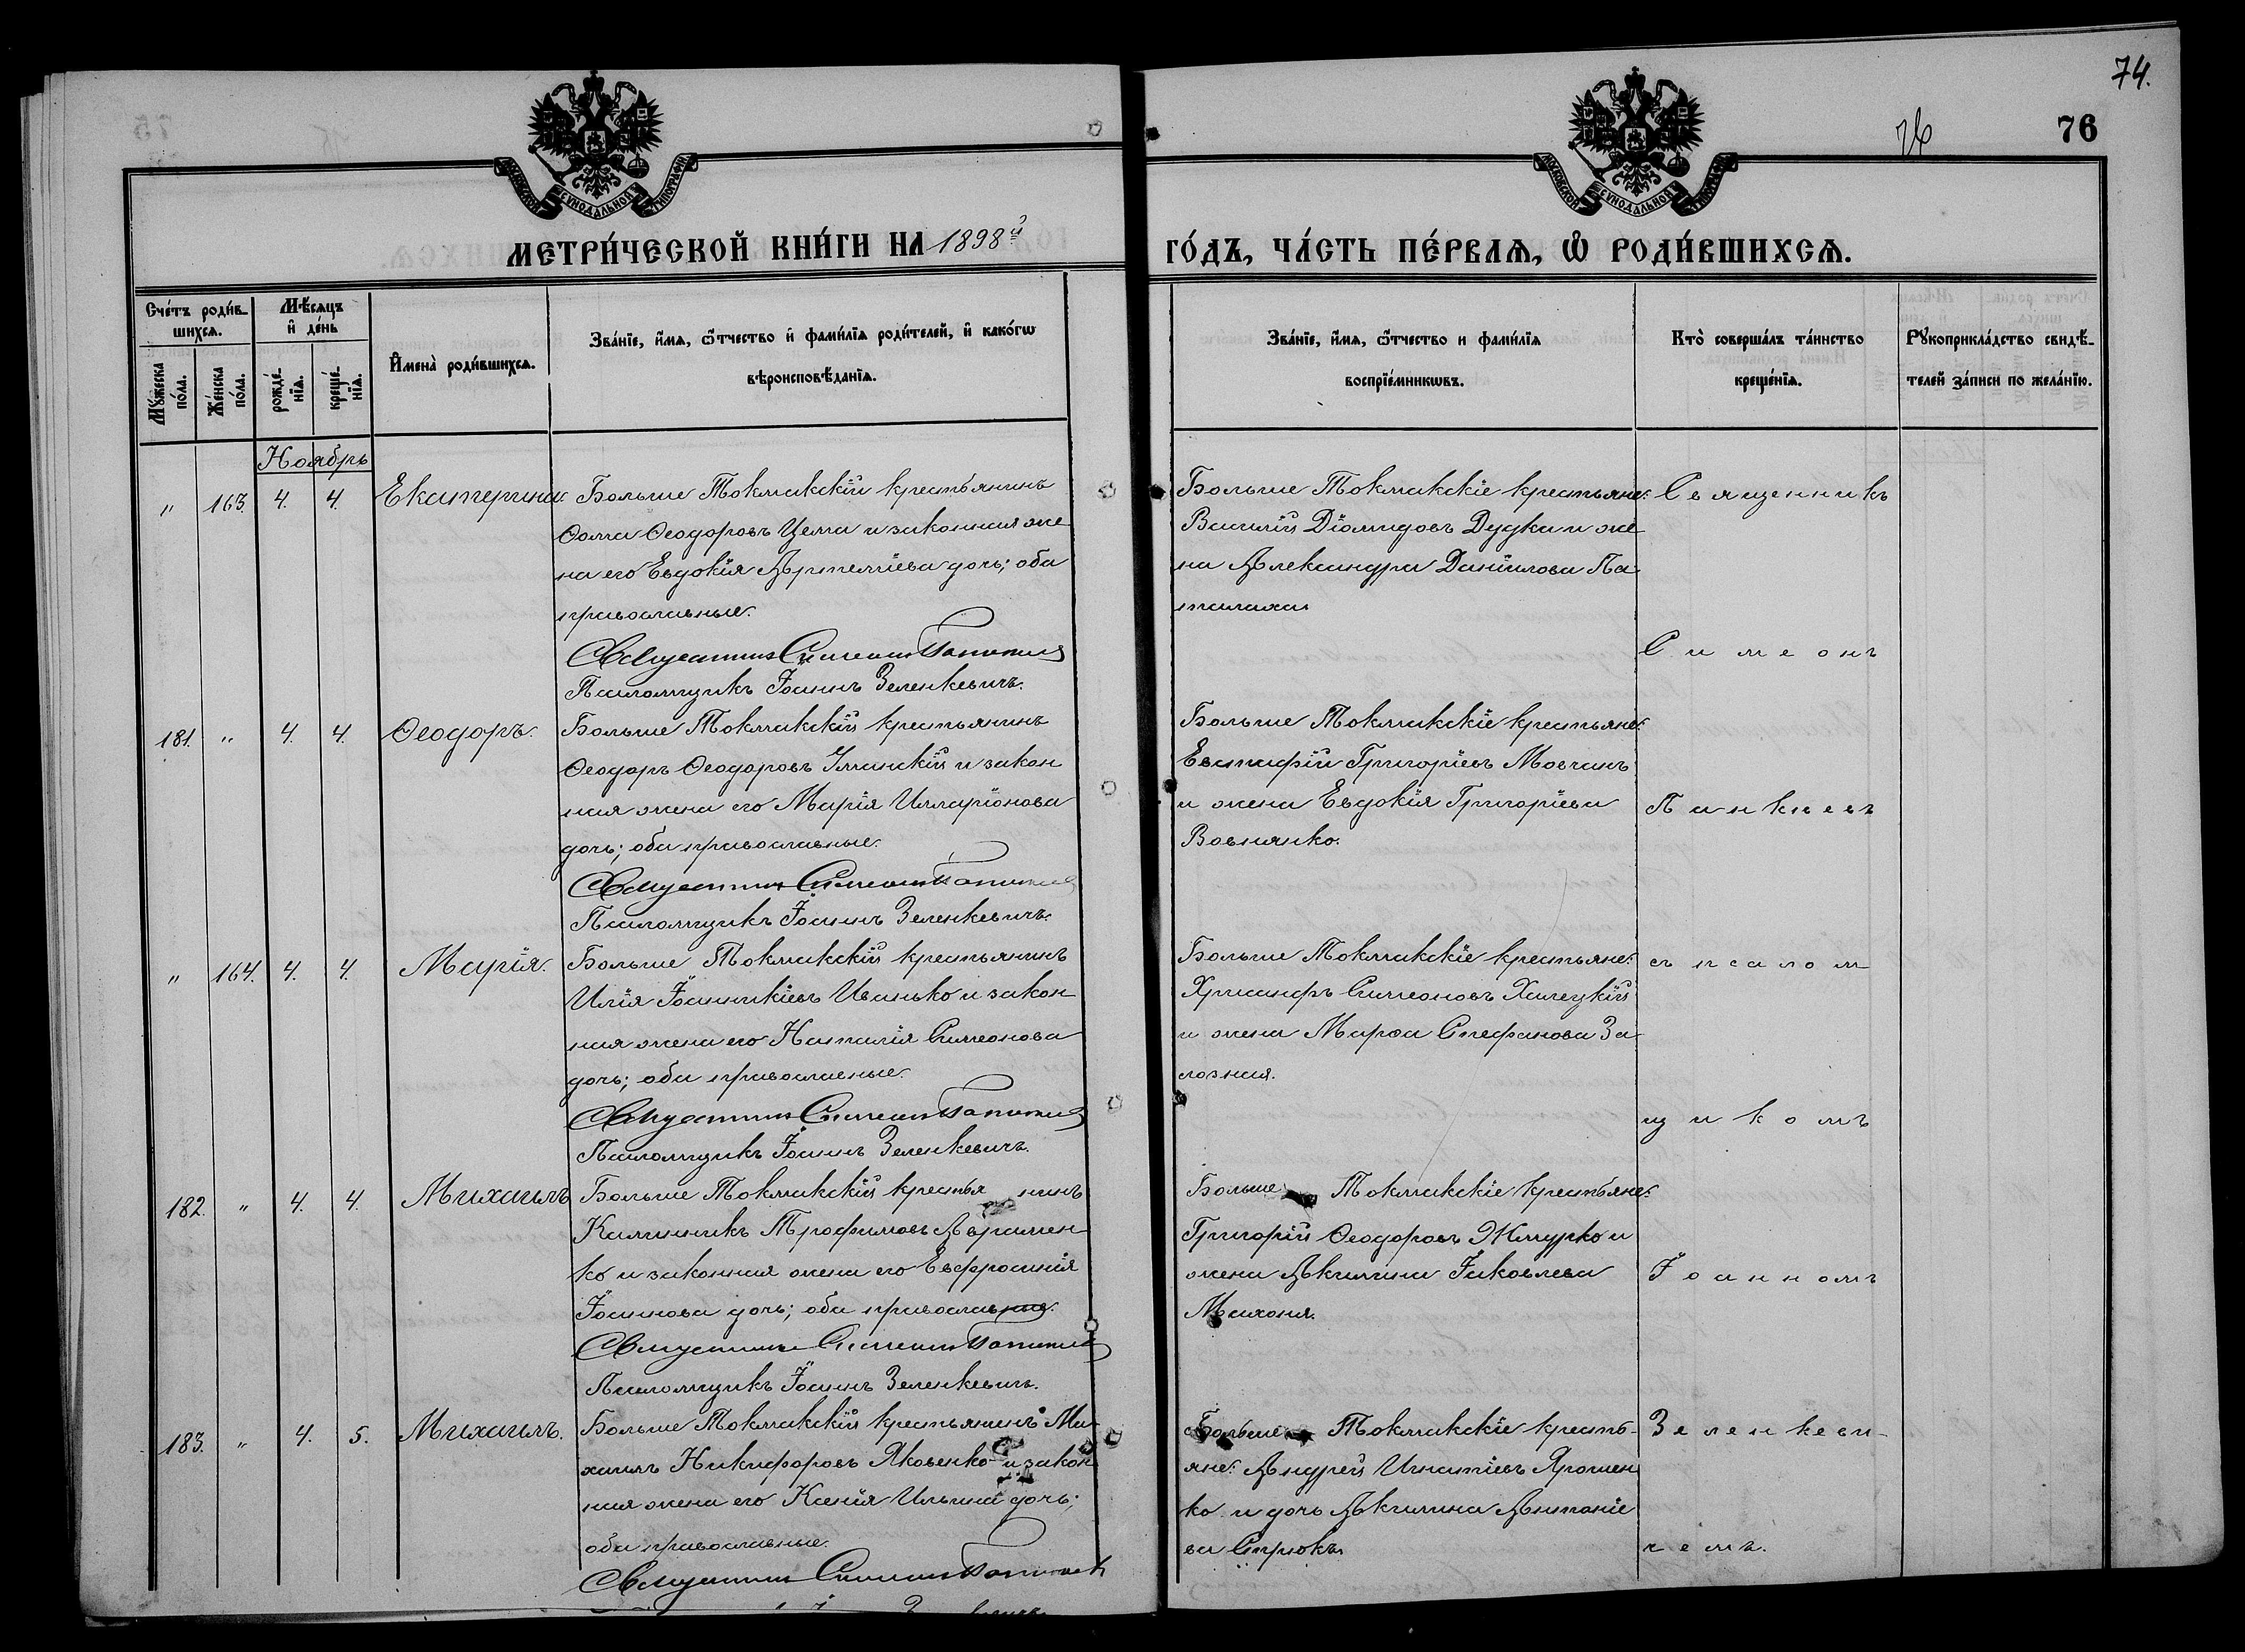 74.
76
76
МЕТРИ́ЧЕСКОЙ КНИ́ГИ НА 1898й
ГО́ДЪ, ЧА́СТЬ ПЕ́РВАѦ, Ѡ҆ РОДИ́ВШИХСѦ.
МОСКОВСКОЙ СѴНОДАЛЬНОЙ ТИПОГРАФІИ
МОСКОВСКОЙ СѴНОДАЛЬНОЙ ТИПОГРАФІИ
Сче́тъ роди́в-
шихсѧ.
Мѣ́сѧцъ
и҆ де́нь
Мꙋ́жеска по́ла.
Же́нска по́ла.
рожде́-нїѧ.
креще́-нїѧ.
И҆мена̀ роди́вшихсѧ.
Зва́нїе, и҆́мѧ, ѻ҆́тчество и҆ фами́лїѧ роди́телей, и҆ како́гѡ
вѣроисповѣ́данїѧ.
Зва́нїе, и҆́мѧ, ѻ҆́тчество и фами́лїѧ
воспрїе́мникѡвъ.
Кто̀ соверша́лъ та́инство
креще́нїѧ.
Рꙋкоприкла́дство свидѣ́-
телей за́писи по жела́нїю.
Ноябрь
" 163. 4. 4. Екатерина Больше Токмакскій крестьянинъ
Ѳома Ѳеодоровъ Цема и законная же
на его Евдокія Артеміева дочь; оба
православные.
Священникъ Симеонъ
Псаломщикъ Іоаннъ Зеленкевичъ.
Больше Токмакскіе крестьяне:
Василій Діомидовъ Дудка и же
на Александра Даніилова Па
талаха
181. " 4. 4. Ѳеодоръ. Больше Токмакскій крестьянинъ
Ѳеодоръ Ѳеодоровъ Уманскій и закон
ная жена его Марія Илларіонова
дочь; оба православные.
Священникъ Симеонъ
Псаломщикъ Іоаннъ Зеленкевичъ.
Больше Токмакскіе крестьяне:
Евстафій Григоріевъ Мовчанъ
и жена Евдокія Григоріева
Вовнянко.
" 164. 4. 4. Марія. Больше Токмакскій крестьянинъ
Илія Іоанникіевъ Иванько и закон
ная жена его Наталія Симеонова
дочь; оба православные.
Священникъ Симеонъ
Псаломщикъ Іоаннъ Зеленкевичъ.
Больше Токмакскіе крестьяне:
Хрисанфъ Симеоновъ Халецкій
и жена Марѳа Стефанова За
лозная.
182. " 4. 4. Михаилъ Больше Токмакскій крестья нинъ
Калинникъ Трофимовъ Аврамен
ко и законная жена его Евфросинія
Іоаннова дочь; оба православные.
Священникъ Симеонъ
Псаломщикъ Іоаннъ Зеленкевичъ.
Больше Токмакскіе крестьяне:
Григорій Ѳеодоровъ Жмурко и
жена Акилина Іаковлева
Махоня.
183. " 4. 5. Михаилъ. Больше Токмакскій крестьянинъ Ми
хаилъ Никифоровъ Яковенко и закон
ная жена его Ксенія Ильина дочь;
оба православные.
Священникъ Симеонъ
Больше Токмакскіе кресть-
яне: Андрей Игнатіевъ Ярошен
ко и дочь Акилина Антоніе
ва Стрюкъ
Священникъ
Симеонъ
Панкеевъ
съ псалом
щикомъ
Іоанномъ
Зеленкеви-
чемъ.